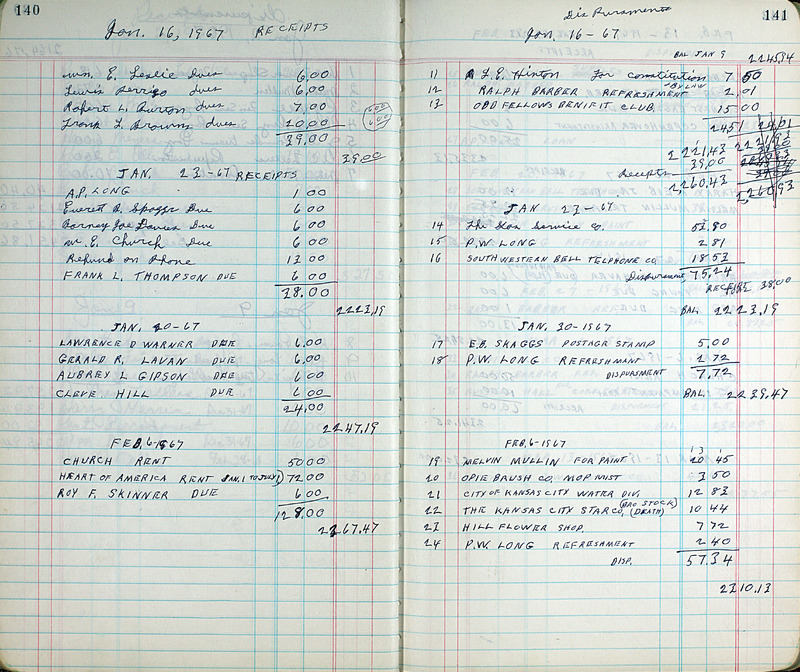 140
Jan. 16, 1967 RECEIPTS
Wm. E. Leslie dues 6.00
Lewis Derrigo dues 6.00
Robert L. Burton dues 7.00
Frank L. Browns dues 20.00
39.00
39.00
JAN. 23-67 RECEIPTS
A.P. LONG 1 00
Everett B. Skaggs Due 6 00
Barney Joe Davies Due 6 00
W. E. Church Due 6 00
Refund on Phone 13 00
FRANK L. THOMPSON DUE 6 00
38.00
2223,19
JAN. 30-67
LAWRENCE D WARNER DUE 6.00
GERALD R, LAVAN DUE 6,00
AUBREY L GIPSON DUE 6 00
CLEVE HILL DUE 6 00
24.00
2247,19
FEB, 6-1967
CHURCH RENT 50 00
HEART OF AMERICA RENT (JAN. 1 TO JULY 1) 72 00
ROY F. SKINNER DUE 6 00
128.00
2367.47
141
Disbursments
Jan. 16-67
BAL JAN 9 2245.94
11 L.E. Hinton For constitution 7 50
BYLAW
12 RALPH BARBER REFRESHMENT 2,01
13 ODD FELLOWS BENIFIT CLUB. 15 00
24 51 24,01
2221,43
39,00
Receipts
2260,43 2260,93
JAN 23-67
14 The Kon Service Co. 53,80
15 P.W. LONG 2 81
16 SOUTH WESTERN BELL TELPHONE CO 18 53
Disbursment 75,24
RECEIPT 38,00
BAL 2223,19
JAN, 30-1967
17 E.B. SKAGGS POSTAGE STAMP 5,00
18 P.W. LONG REFRESHMANT 2 72
DISPURSMENT 7,72
BAL. 2239,47
FEB, 6-1967
19 MELVIN MULLIN FOR PAINT 20 45
20 OPIE BRUSH CO, MOP, MIST 3 50
21 CITY OF KANSAS CITY WATER DIV. 12 83
22 THE KANSAS CITY STAR CO, (BRO STOCK) (DEATH) 10 44
23 HILL FLOWER SHOP. 7 72
24 P.W. LONG REFRESHMENT 2 40
DISP. 57.34
2310.13